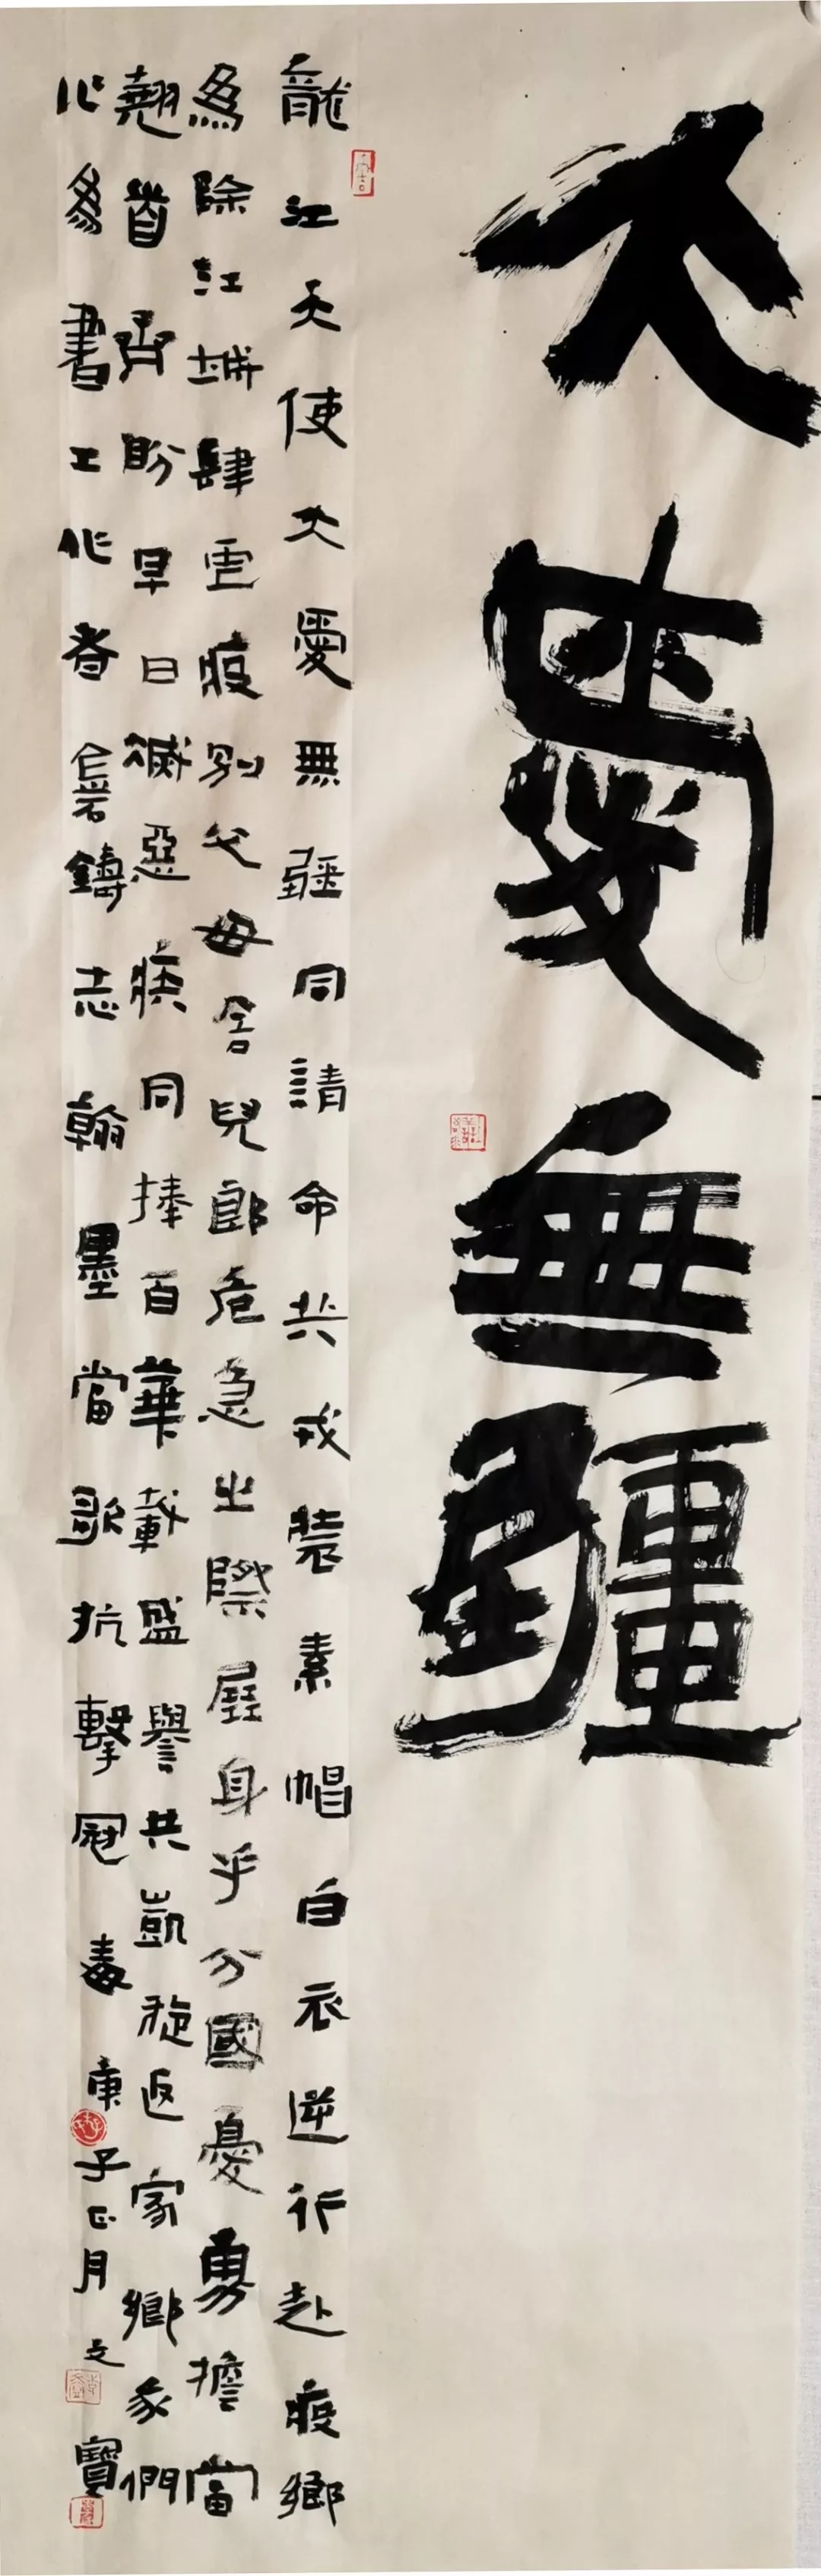 大愛無疆
龍江天使大愛無疆同請命共戎裝素帽白衣逆行赴疫鄉
為除江城肆虐疫別父母舍兒郎危急之際屈身乎分國憂勇擔當
翹首齊盼早日滅惡疾同捧百華載盛譽共凱旋返家鄉我們
作為書工作者當鑄志翰墨當歌抗擊冠毒庚子正月文寶